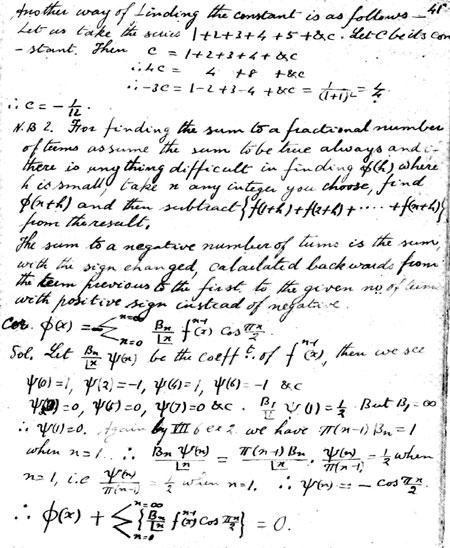 Another way of finding the constant is as follows — 41
Let us take the series 1+2+3+4+5+&c. Let C be its con
-stant. Then c = 1+2+3+4+&c
∴ 4c = 4 +8 +&c
∴ -3c = 1-2+3-4+&c = 1/(1+1)² = 1/4
∴ c = -1/12.
N.B 2. For finding the sum to a fractional number
of terms assume the sum to be true always and if
there is any thing difficult in finding φ(h), where
h is small, take n any integer you choose, find
φ(n+h) and then subtract {f(1+h)+f(2+h)+ ····· +f(n+h)}
from the result.
The sum to a negative number of terms is the sum,
with the sign changed, calculated backwards from
the term previous to the first to the given no of terms
with positive sign instead of negative.
Cor. φ(x) = Σ n=∞ n=0 Bn/⌊n f^(n-1)(x) Cos πn/2.
Sol. Let Bn/⌊n ψ(n) be the coefft. of f^(n-1)(x), then we see
ψ(0)=1, ψ(2)=-1, ψ(4)=1, ψ(6)=-1 &c
ψ(3)=0, ψ(5)=0, ψ(7)=0 &c. B1/⌊1 ψ(1)=1/2. But B1=∞
∴ ψ(1)=0. Again by VII 6 ex 2 we have π(n-1)Bn=1
when n=1. ∴ Bn ψ(n)/⌊n = π(n-1)Bn/⌊n . ψ(n)/π(n-1) = 1/2 when
n=1, i.e ψ(n)/π(n-1) = 1/2 when n=1. ∴ ψ(n) = - Cos πn/2.
∴ φ(x) + Σ n=∞ n=0 {Bn/⌊n f^(n-1)(x) Cos πn/2} = 0.